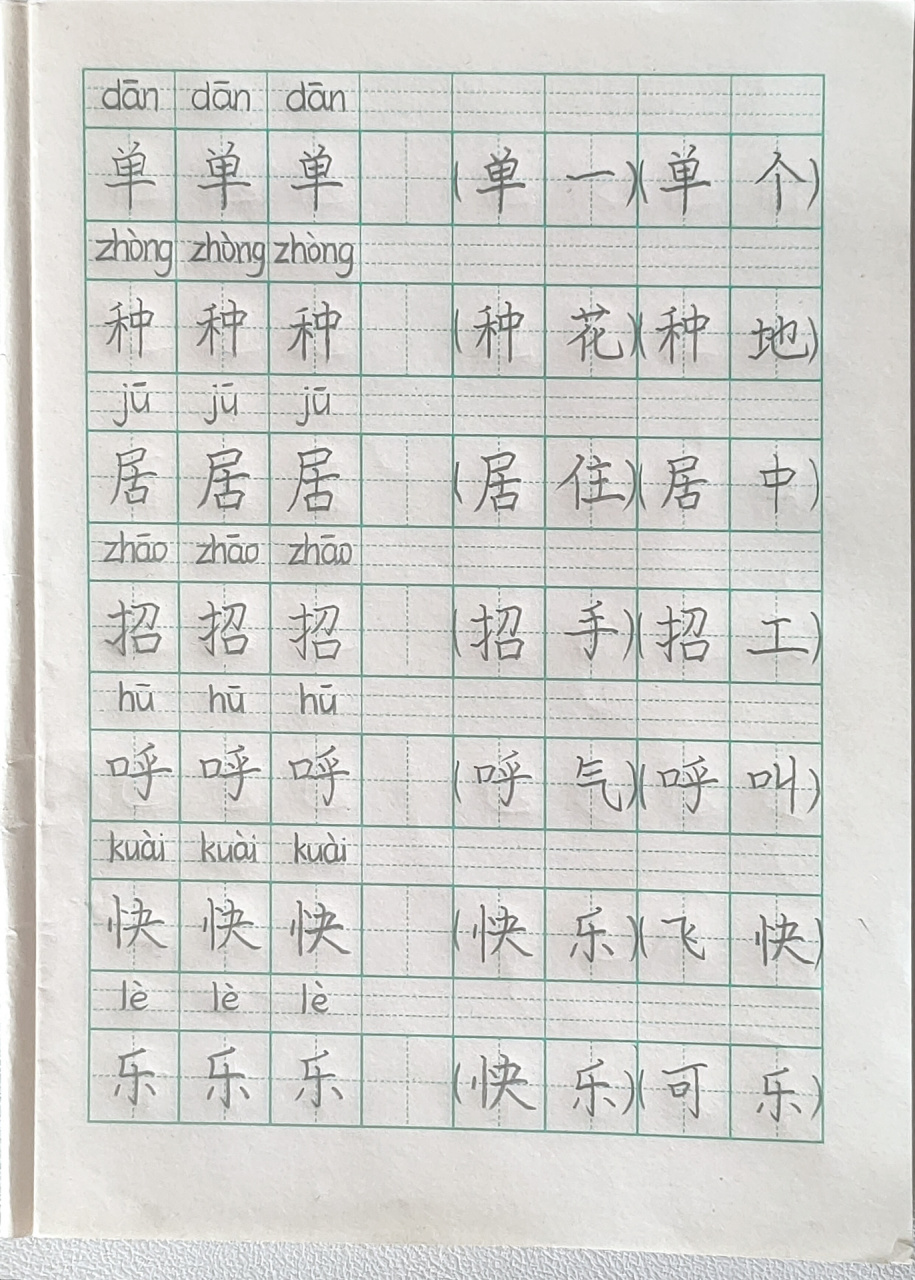 dān dān dān
单 单 单 (单 一)(单 个)
zhòng zhòng zhòng
种 种 种 (种 花)(种 地)
jū jū jū
居 居 居 (居 住)(居 中)
zhāo zhāo zhāo
招 招 招 (招 手)(招 工)
hū hū hū
呼 呼 呼 (呼 气)(呼 叫)
kuài kuài kuài
快 快 快 (快 乐)(飞 快)
lè lè lè
乐 乐 乐 (快 乐)(可 乐)